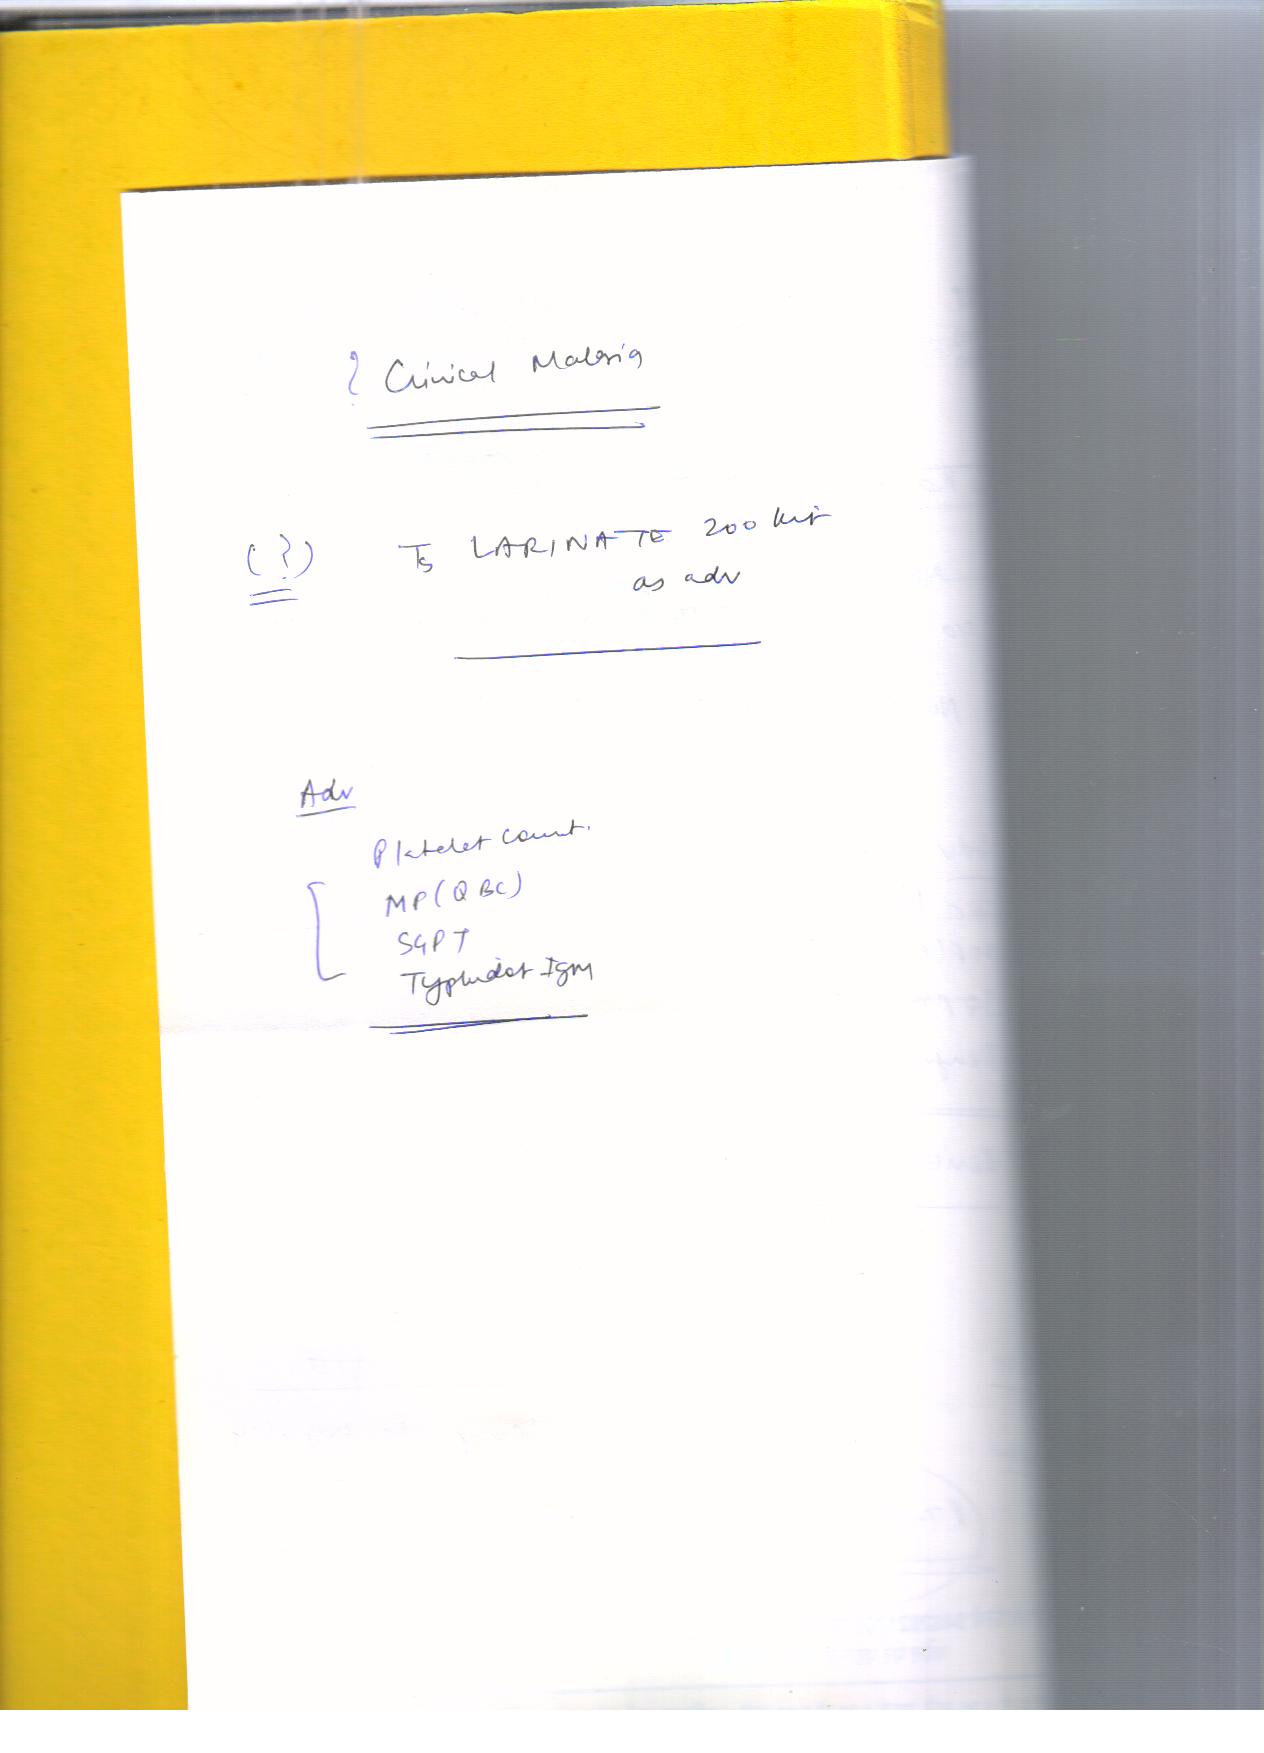 ? Clinical Malaria
(?) Tb LARINATE 200 kit
as adv
Adv
Platelet count.
MP (QBC)
SGPT
Typhidot IgM